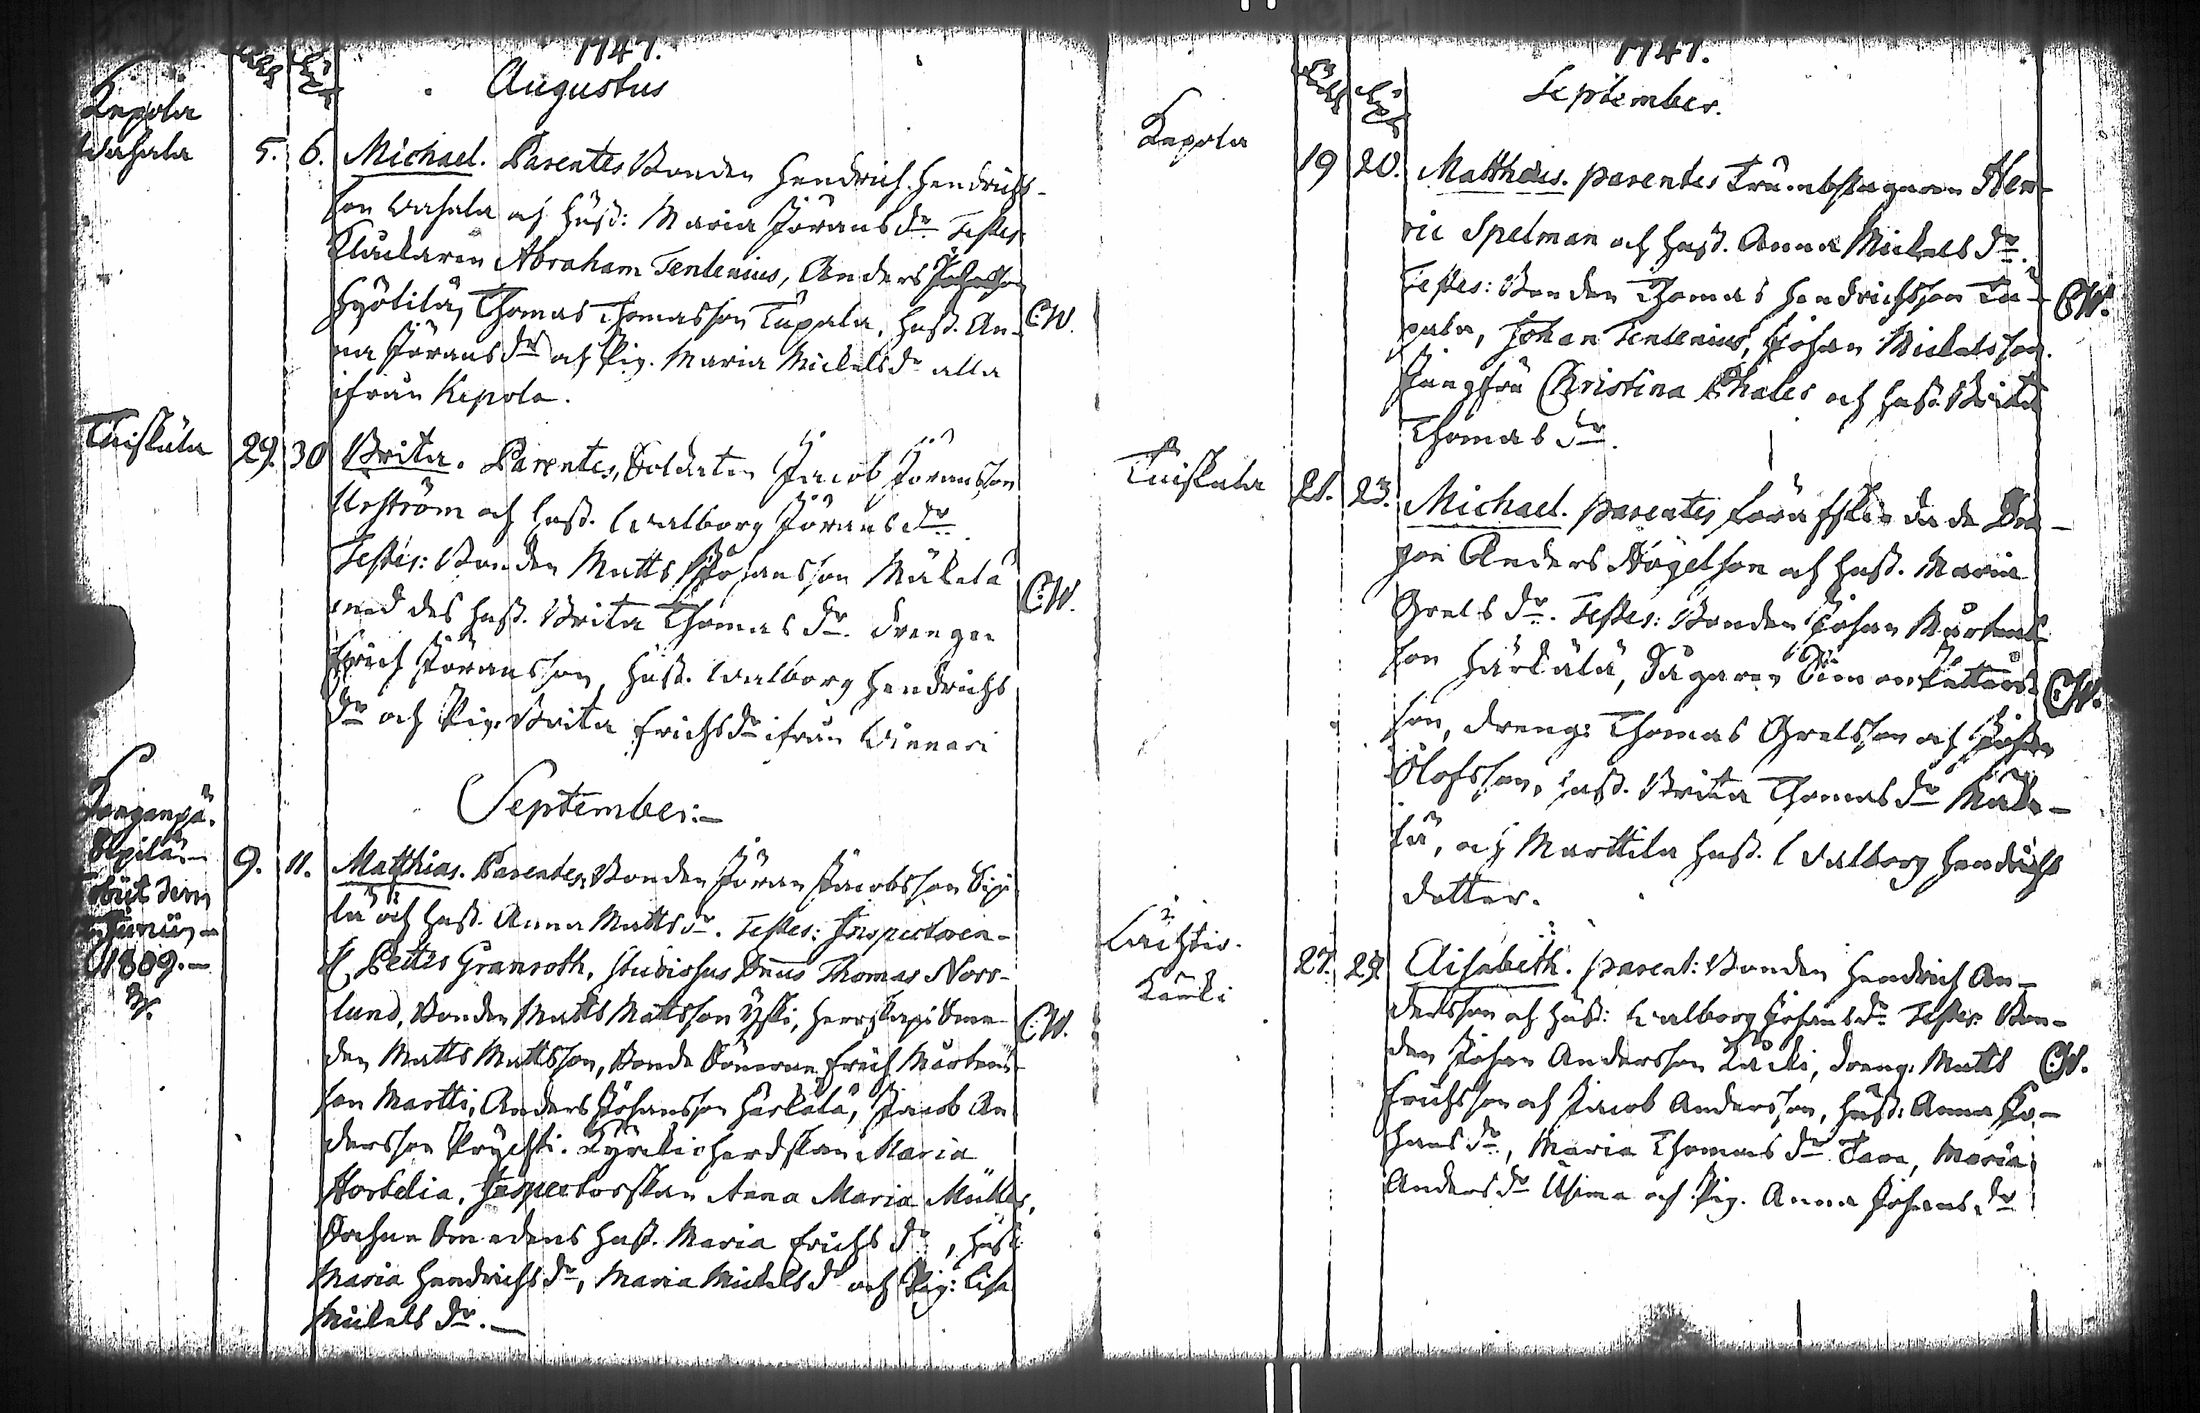 1747.
Augustus
Kepola
Wahala
5. 6. Michael. Parentes Bonden Hendrich Hendrichs-
son Wahala och Hust: Maria Jöransdr Testes
Klockaren Abraham Tenlenius, Anders Johansson
Hyötilä, Thomas Thomasson Tupala, Hust. An-
C:W.
na Jöransdr och Pig. Maria Mickelsdr alla
ifrån Kepola.
Tuiskula
29. 30 Brita. Parentes, Soldaten Jacob Jöransson
Urström och Hust. Walborg Jöransdr.
Testes: Bonden Matts Johansson Mäkelä
med des Hust. Brita Thomasdr. Drengen
C:W.
Erich Jöransson, Hust. Walborg Hendrichs
dr och Pig. Brita Erichsdr ifrån Winnari
September:
Sipilä
död den
Junii
1809.
9. 11. Matthias. Parentes, Bonden Jöran Jacobsson Sipi-
lä och Hust. Anna Mattsdr. Testes: Inspectoren
H. Petter Granroth, Studiosus Dnus Thomas Norr-
lund, Bonden Matts Mattsson Yski, Herrskaps Sme-
C:W.
den Matts Mattsson, Bonde Sönerne Erich Mårtens-
son Martti, Anders Johansson Härkälä, Jacob An-
dersson Prychti. Kyrckioherdskan Maria
Hortelia, Inspectorskan Anna Maria Müller,
Sochne Smedens Hust. Maria Erichsdr, Hust:
Maria Hendrichsdr, Maria Mickelsdr och Pig: Lisa
Mickelsdr.
1747.
September.
Kepola
19 20. Mattheus. parentes Trumbslagaren Hen-
ric Spelman och Hust. Anna Mickelsdr.
Testes: Bonden Thomas Hendrichsson Tu-
C:W.
pala, Johan Tenlenius, Johan Mickelsson.
Jungfru Christina Phales och Hust. Brita
Thomasdr.
Tuiskula
21. 23. Michael. parentes förafskedade Dra-
gon Anders Högelson och Hust. Maria
Grelsdr. Testes: Bonden Johan Mårtens-
son Härkälä, Sågaren Simon Petters-
C:W.
son, Dreng: Thomas Grelsson och Johan
Olofsson, Hust. Brita Thomasdr Mäke-
lä, och Marttila Hust. Walborg Hendrichs
dotter.
Kauki
27. 29. Elisabeth. parent: Bonden Hendrich An-
dersson och Hust: Walborg Johansdr Testes: Bon-
den Johan Andersson Kauki, Dreng. Matts
C:W.
Erichsson och Jacob Andersson, Hust: Anna Jo-
hansdr, Maria Thomasdr Tara, Maria
Andersdr Uhima och Pig. Anna Johansdr